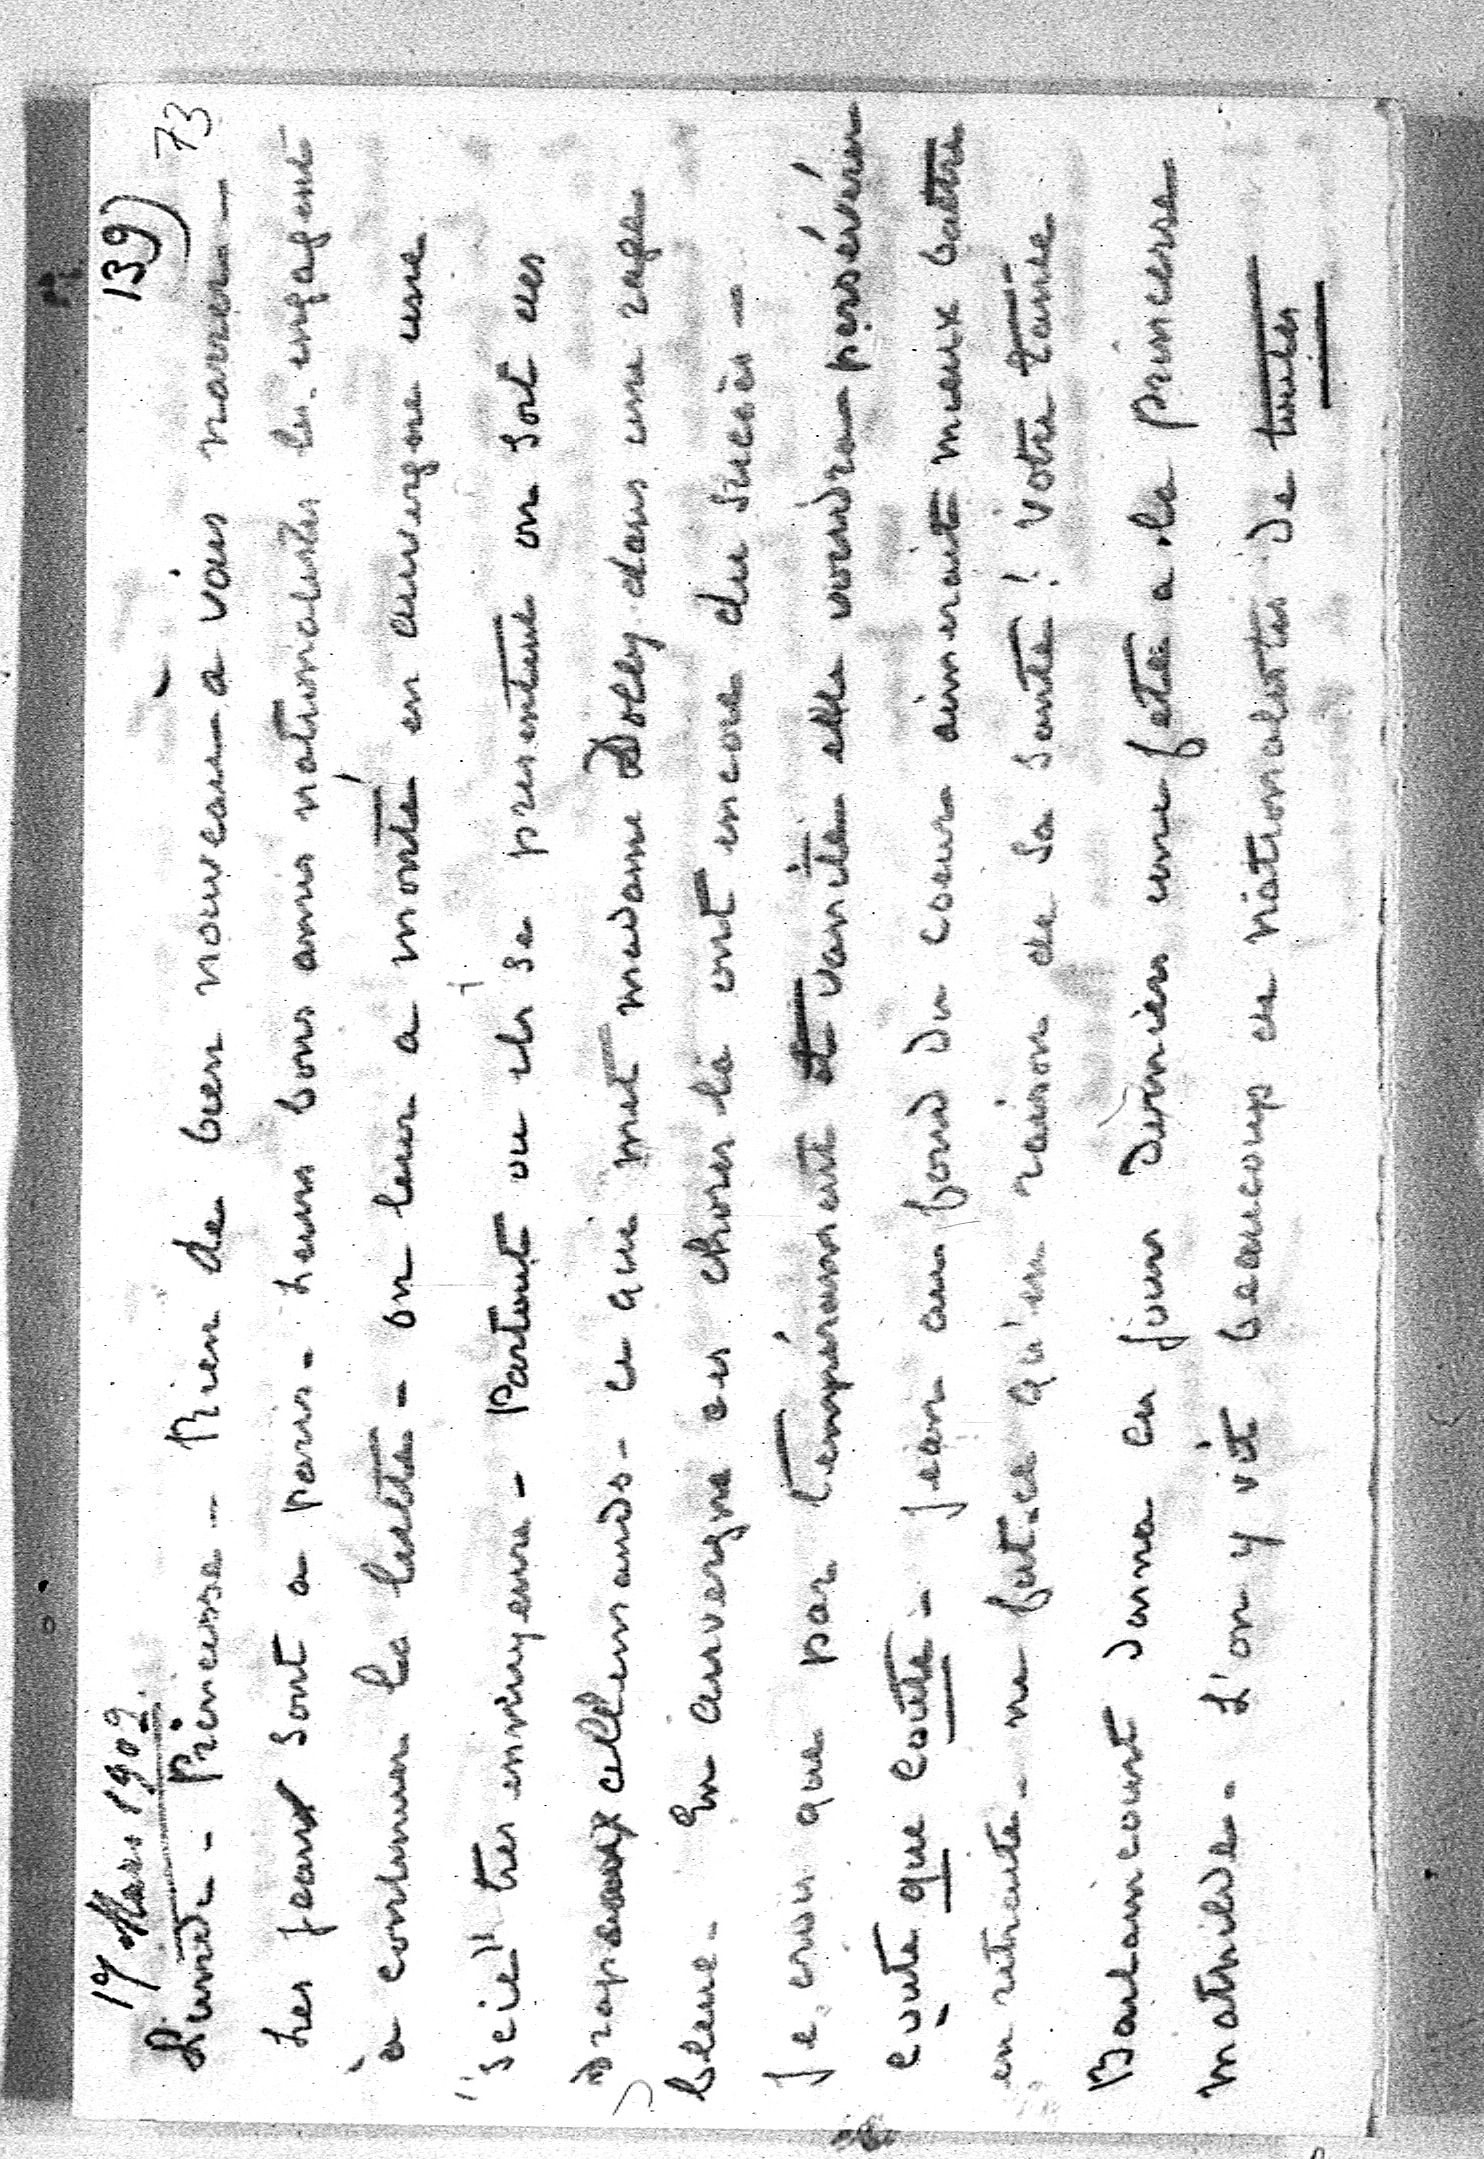 139) 73
17 Mars 1902.
Lundi - Princesse - Rien de bien nouveau a vous narrer -
Les jeans sont a paris - Leurs bons amis nationalistes les engagent
à continuer la lutte - on leur a monté en auvergne une
"scie" tres ennuyeuse - Partout ou ils se presentent on sort des
drapeaux allemands - ce qui met madame Dolly dans une rage
bleue - En auvergne ces choses là ont encore du succès -
Je crois que par tempérament et vanité elle voudra persévérer
coute que coute - Jean au fond du coeur aimerait mieux battre
en retraite - ne fut-ce qu'en raison de sa santé ! votre tante
Baclaincourt donna ces jours derniers une fete a la princesse
mathilde - L'on y vit beaucoup de nationalistes de toutes